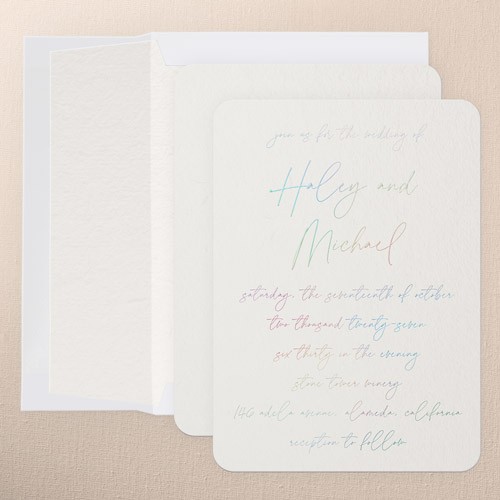 join us for the wedding of
Haley and
Michael
saturday, the seventeenth of october
two thousand twenty-seven
six thirty in the evening
stone tower winery
140 adela avenue, alameda, california
reception to follow